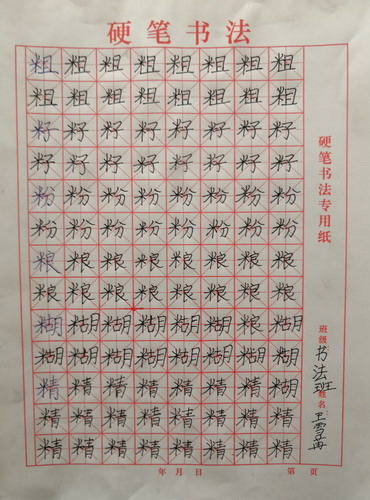 硬笔书法
粗粗粗粗粗粗粗粗
粗粗粗粗粗粗粗粗
籽籽籽籽籽籽籽籽
籽籽籽籽籽籽籽籽
粉粉粉粉粉粉粉粉
粉粉粉粉粉粉粉粉
粮粮粮粮粮粮粮粮
粮粮粮粮粮粮粮粮
糊糊糊糊糊糊粮糊
糊糊糊糊糊糊糊糊
精精精精精精精糊
精精精精精精精精
精精精精精精精精
硬笔书法专用纸
班级:书法班 姓名:卫雪
年 月 日 第 页